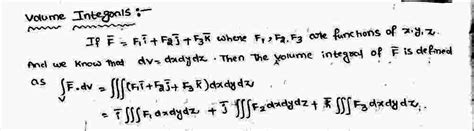 Volume Integrals :-
If F̄ = F₁ī + F₂j̄ + F₃k̄ where F₁, F₂, F₃ are functions of x, y, z.
And we know that dv = dxdydz. Then the volume integral of F̄ is defined
as ∫ᵥ F̄.dv = ∭(F₁ī + F₂j̄ + F₃k̄) dxdydz
= ī ∭ F₁ dxdydz + j̄ ∭ F₂ dxdydz + k̄ ∭ F₃ dxdydz.